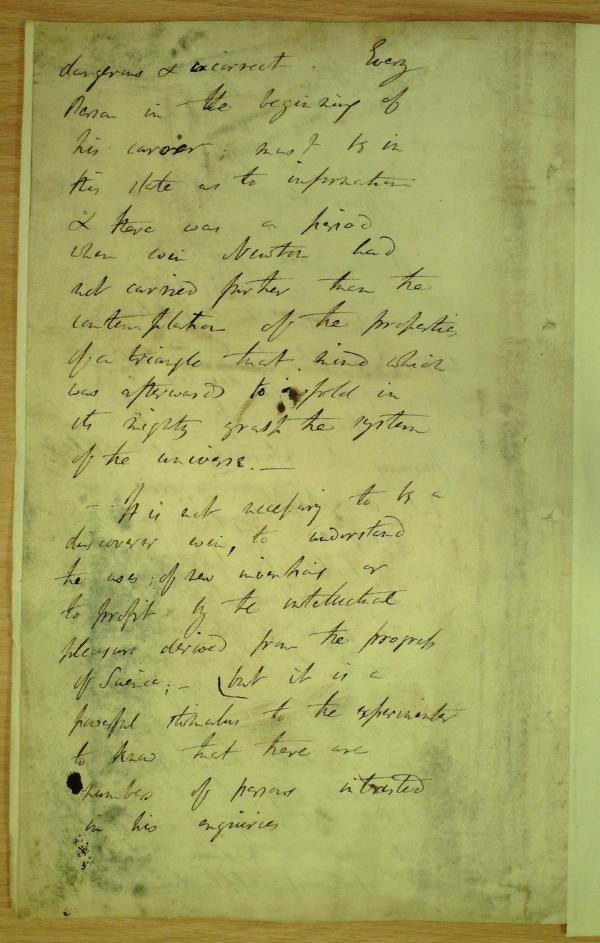 dangerous & incorrect. Every
Person in the beginning of
his career; must be in
this state as to information
& there was a period
when even Newton had
not carried further than the
contemplation of the properties
of a triangle that mind which
was afterwards to infold in
its mighty grasp the system
of the universe. —
— It is not necessary to be a
discoverer even, to understand
the uses of new inventions or
to profit by the intellectual
pleasure derived from the progress
of Science; — but it is a
powerful stimulus to the experimenter
to know that there are
numbers of persons interested
in his enquiries